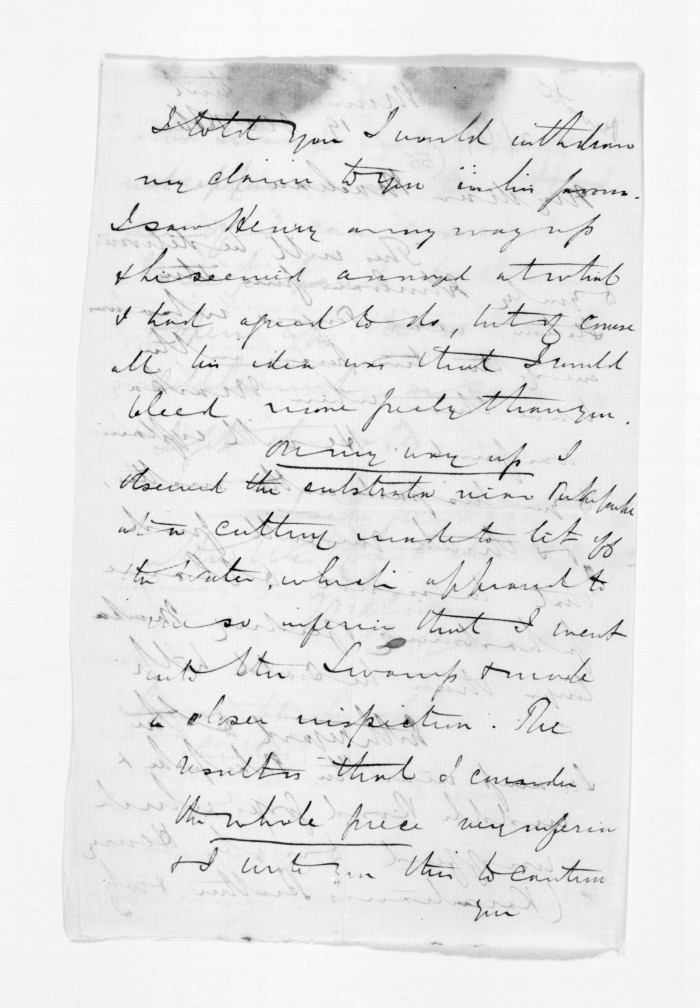 I told you I would withdraw
my claim to you in his favour.
I saw Henry on my way up
& he seemed annoyed at what
I had agreed to do, but of course
all his idea was that I would
bleed more freely than you.
On my way up I
observed the substrata near
at a cutting made to let off
the water, which appeared to
me so inferior that I went
into the Swamp & made
a closer inspection. The
result is that I consider
the whole piece very inferior
& I write you this to caution
you